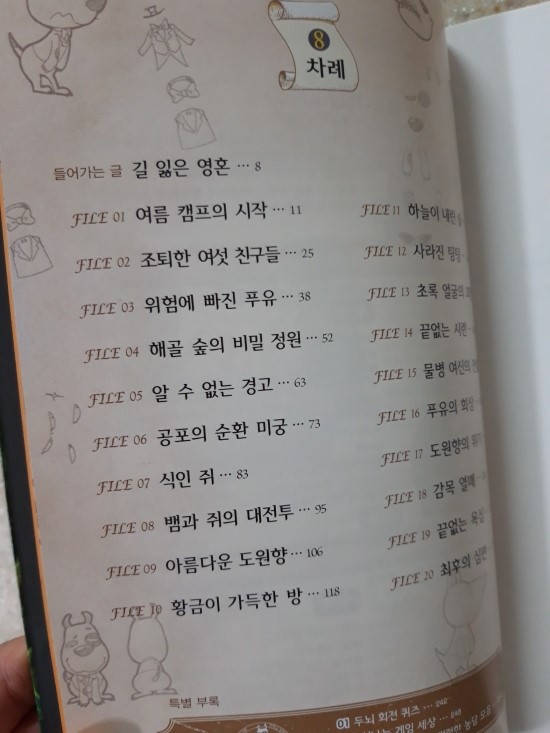 8
차례
들어가는 글 길 잃은 영혼 … 8
FILE 01 여름 캠프의 시작 … 11
FILE 02 조퇴한 여섯 친구들 … 25
FILE 03 위험에 빠진 푸유 … 38
FILE 04 해골 숲의 비밀 정원 … 52
FILE 05 알 수 없는 경고 … 63
FILE 06 공포의 순환 미궁 … 73
FILE 07 식인 쥐 … 83
FILE 08 뱀과 쥐의 대전투 … 95
FILE 09 아름다운 도원향 … 106
FILE 10 황금이 가득한 방 … 118
FILE 11 하늘이 내린
FILE 12 사라진 탐탐
FILE 13 초록 얼굴의
FILE 14 끝없는 시련
FILE 15 물병 여신의
FILE 16 푸유의 회상
FILE 17 도원향의
FILE 18 감목 열매
FILE 19 끝없는 욕심
FILE 20 최후의 심판
특별 부록
01 두뇌 회전 퀴즈 … 242
게임 세상 … 248
농담 모음